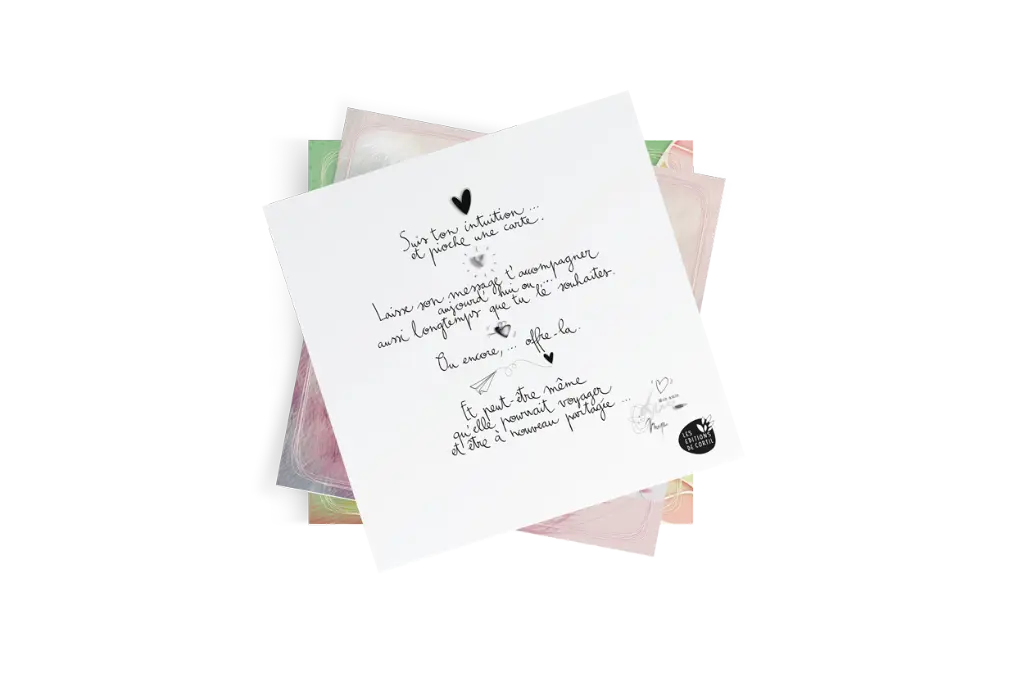 Suis ton intuition ...
et pioche une carte.
Laisse son message t'accompagner
aujourd'hui ou ...
aussi longtemps que tu le souhaites.
Ou encore, ... offre-la.
Et peut-être même
qu'elle pourrait voyager
et être à nouveau partagée ...
LES
EDITIONS
DE CORTIL